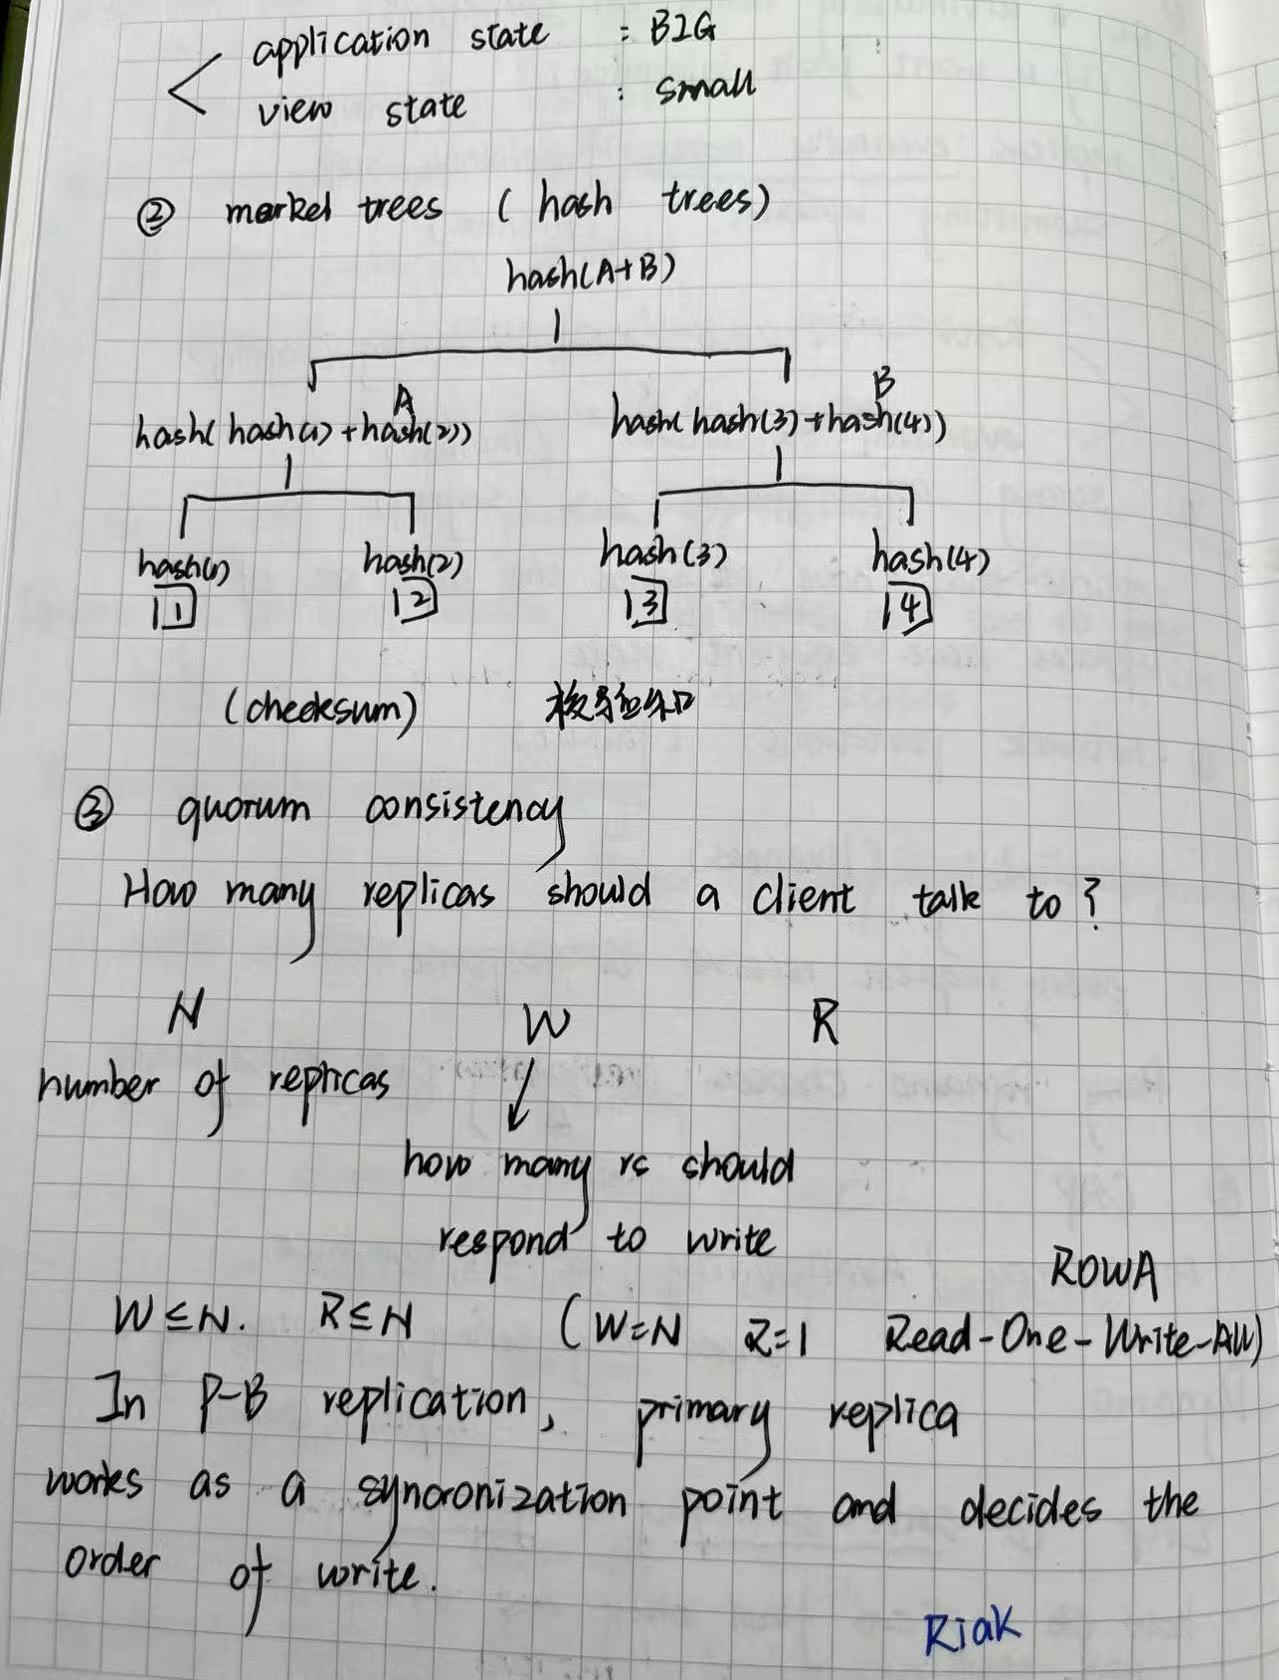 application state : BIG
view state : small
② merkel trees ( hash trees)
hash(A+B)
A B
hash( hash(1) + hash(2)) hash( hash(3) + hash(4))
hash(1) hash(2) hash(3) hash(4)
1 2 3 4
(checksum) 校验和
③ quorum consistency
How many replicas should a client talk to ?
N W R
number of replicas
how many rs should
respond to write
ROWA
W≤N. R≤N (W=N R=1 Read-One-Write-All)
In P-B replication, primary replica
works as a syncronization point and decides the
order of write.
Riak